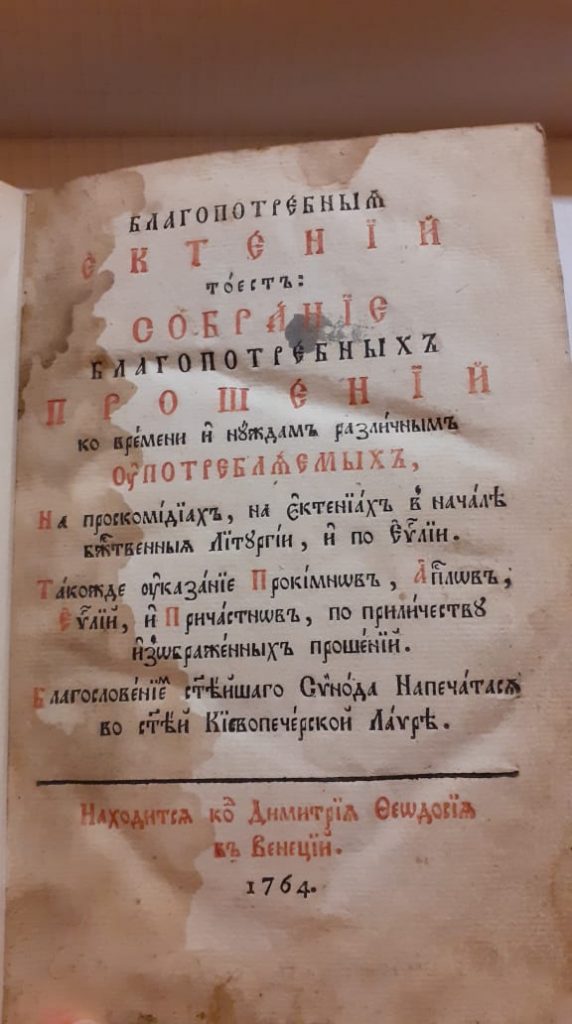 БЛАГОПОТРЕ́БНЫѦ
Є҆КТЕ́НЇЙ
то́естъ:
СОБРА́НЇЕ
БЛАГОПОТРЕ́БНЫХЪ
ПРОШЕ́НЇЙ
ко вре́мени и҆ нꙋ́ждамъ разли́чнымъ
Оу҆ПОТРЕБЛѦ́ЕМЫХЪ,
На проскомі́дїахъ, на є҆ктенїа́хъ в нача́лѣ
бж҃твенныѧ Лїтꙋргі́и, и҆ по Є҆ѵ҃лїи.
Та́кожде оу҆каза́нїе Прокі́мнѡвъ, А҆п҃лѡвъ,
Є҆ѵ҃лїй, и҆ Прича́стнѡвъ, по прили́честву
и҆зѡбраже́нныхъ проше́нїй.
Благослове́нїемъ ст҃ѣ́йшаго Сѵно́да Напеча́тасѧ
во ст҃ѣ́й Кїевопече́рской Ла́ѵрѣ.
Находитсѧ ко҆ Димитрїѧ Ѳеѡдосїѧ
въ Венецїй.
1764.